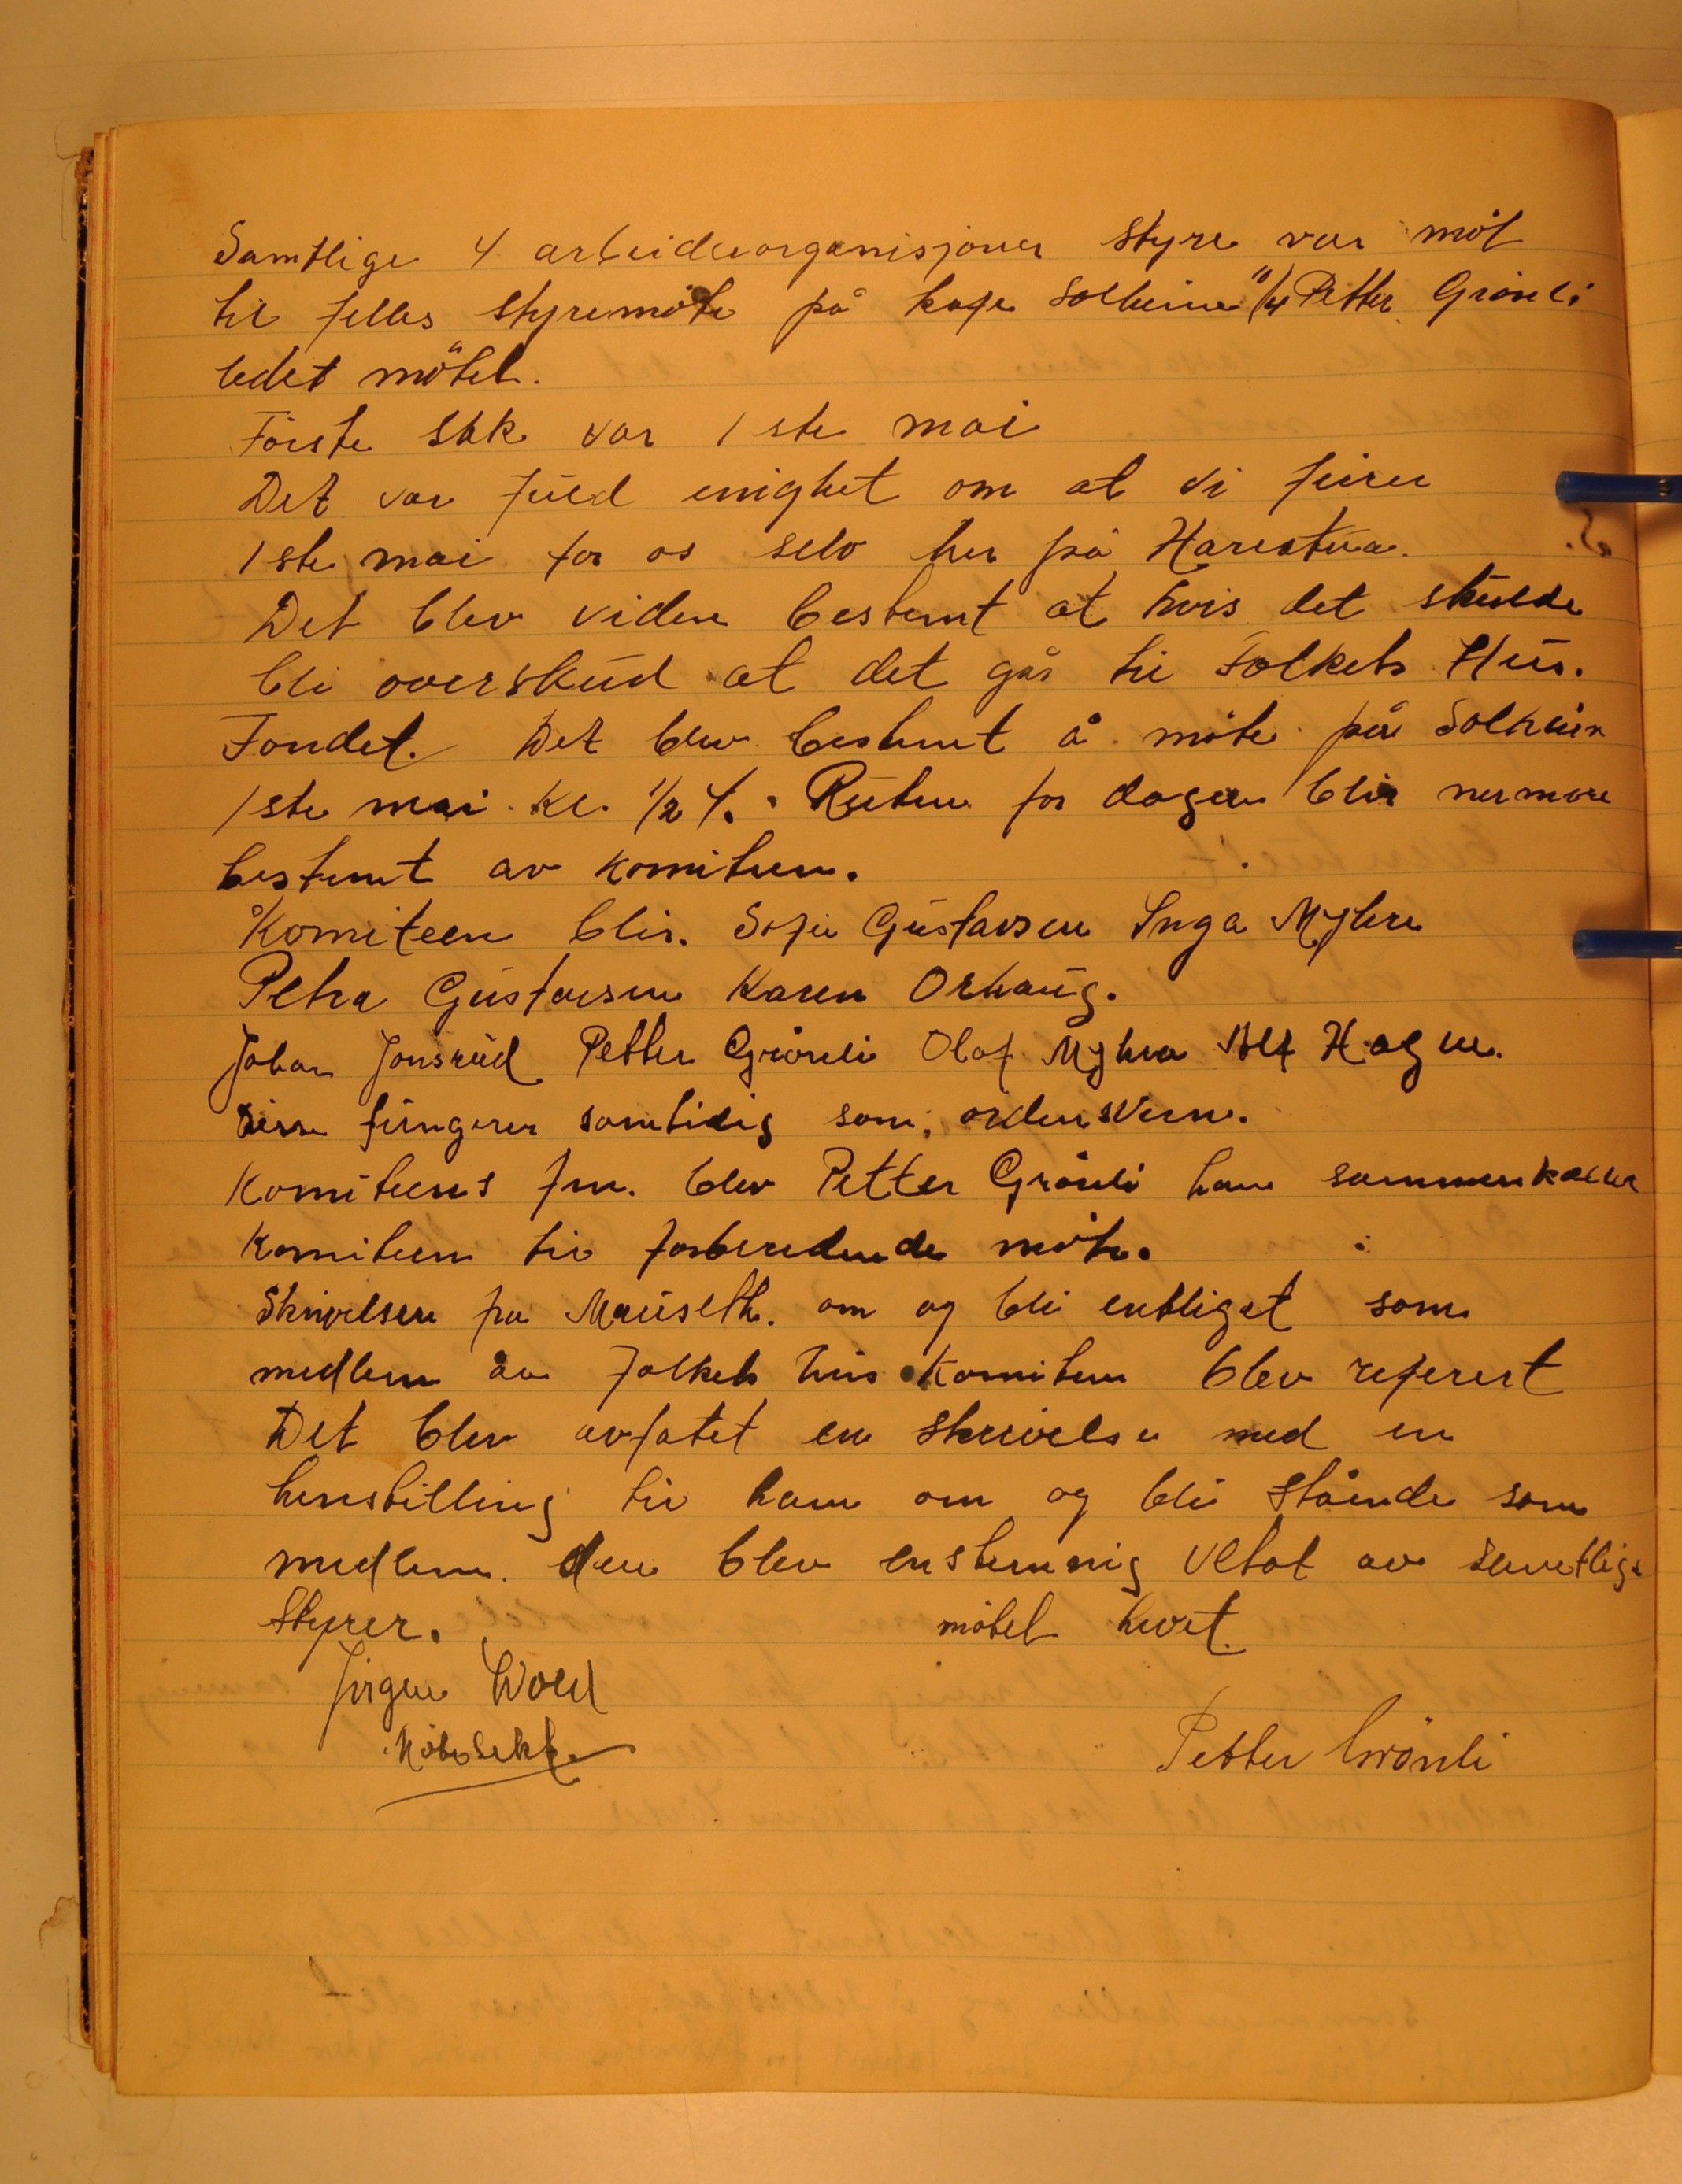 Samtlige 4 arbeiderorganisjoner styre var møt
til felles styremöte på kafe Solheim 11/4 Petter Grönli
ledet mötet.
Förste sak var 1ste mai
Det var fuld enighet om at vi feirer
1ste mai for os selv her på Harestua.
Det blev videre bestemt at hvis det skulde
bli overskud at det går til Folkets Hus.
Fondet. Det blev bestemt å möte på Solheim
1ste mai kl. 1/2 4. Ruten for dagen blir nermere
bestemt av komiteen.
Komiteen blir. Sofie Gustavsen Inga Myhre
Petra Gustavsen Karen Orhaug.
Johan Jonsrud Petter Grönli Olaf Myhra Alf Hagen.
Disse fungerer samtidig som ordensvern.
Komiteens fm. blev Petter Grönli han sammenkaller
Komiteen til forberedende möte.
Skrivelsen fra Mauseth. om og bli entliget som
medlem av Folkets hus Komiteen blev referert
Det blev avfatet en skrivelse med en
henstilling til ham om og bli stående som
medlem. den blev enstemmig vetat av samtlige
Styrer. mötet hevet.
Jørgen Wold
Möte Sekr.
Petter Grönli